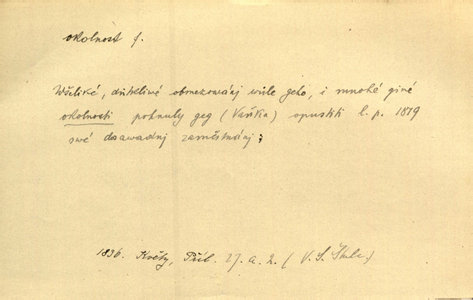 okolnost f.
Wšeliké, důtkliwé obmezowánj wůle geho, i mnohé giné
okolnosti pohnuly geg (Vaňka) opustiti l. p. 1819
swé dosawadnj zaměstnánj;
1836. Květy, Příl. 27. a. 2. (V. S. Štulc)